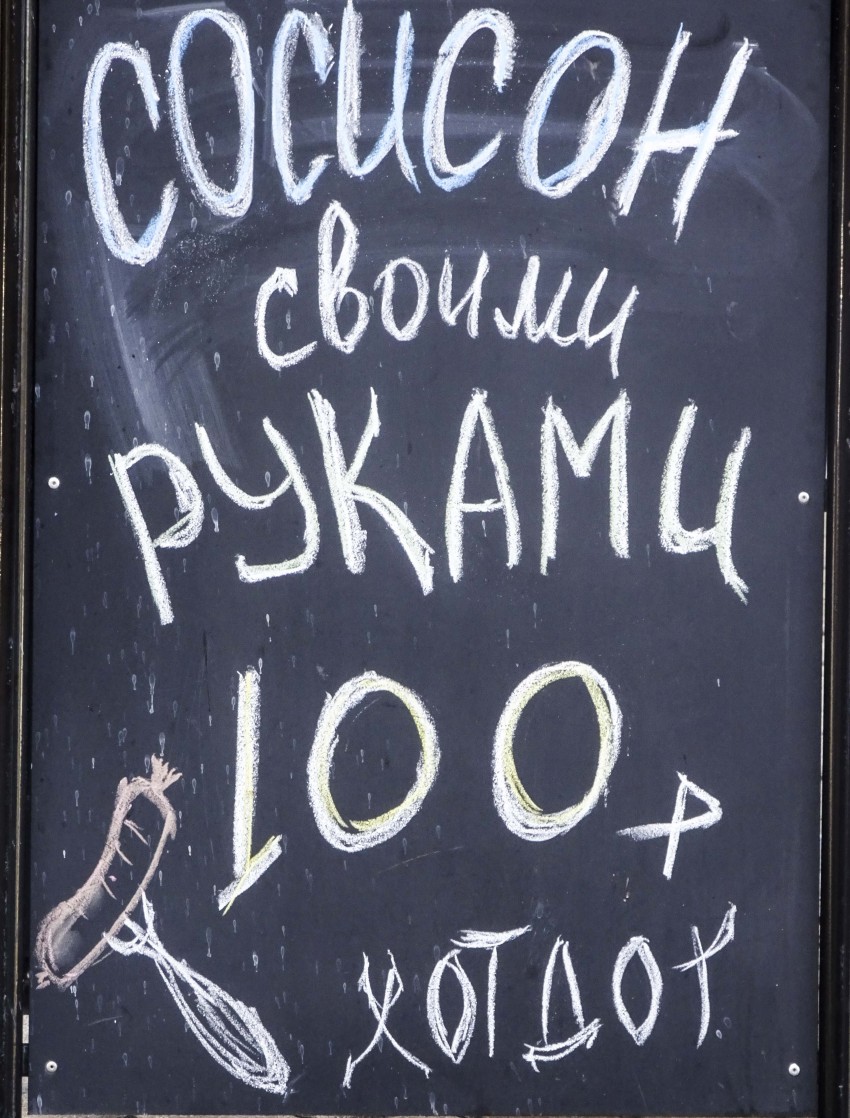 СОСИСОН
своими
РУКАМИ
100 ₽
ХОТДОГ